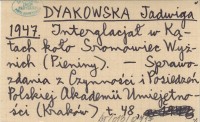 DYAKOWSKA Jadwiga
1947. Interglacjał w Ką-
tach koło Sromowiec Wyż-
nich (Pieniny). — Sprawo-
zdania z Czynności i Posiedzeń
Polskiej Akademii Umiejętno-
ści (Kraków), t. 48